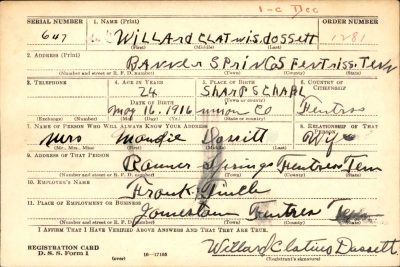 1-c Dec
SERIAL NUMBER 1. NAME (Print) ORDER NUMBER
647 WILLARD CLATWIS DOSSETT 1281
(First) (Middle) (Last)
2. ADDRESS (Print)
BANNER SPRINGS FENTRISS. TENN
(Number and street or R. F. D. number) (Town) (County) (State)
3. TELEPHONE 4. AGE IN YEARS 5. PLACE OF BIRTH 6. COUNTRY OF CITIZENSHIP
24 SHARPS CHAPAL
DATE OF BIRTH (Town or county)
May 16, 1916 union Co Fentros
(Exchange) (Number) (Mo.) (Day) (Yr.) (State or country)
7. NAME OF PERSON WHO WILL ALWAYS KNOW YOUR ADDRESS 8. RELATIONSHIP OF THAT PERSON
Mrs Maudie Dossitt Wife
(Mr., Mrs., Miss) (First) (Middle) (Last)
9. ADDRESS OF THAT PERSON
Banner Springs Fentress Tenn
(Number and street or R. F. D. number) (Town) (County) (State)
10. EMPLOYER'S NAME
Frank
11. PLACE OF EMPLOYMENT OR BUSINESS
Jamestown Fentress Tenn
(Number and street or R. F. D. number) (Town) (County) (State)
I AFFIRM THAT I HAVE VERIFIED ABOVE ANSWERS AND THAT THEY ARE TRUE.
REGISTRATION CARD
D. S. S. Form 1 16-17105 Willard Clatius Dossett
(Registrant's signature)